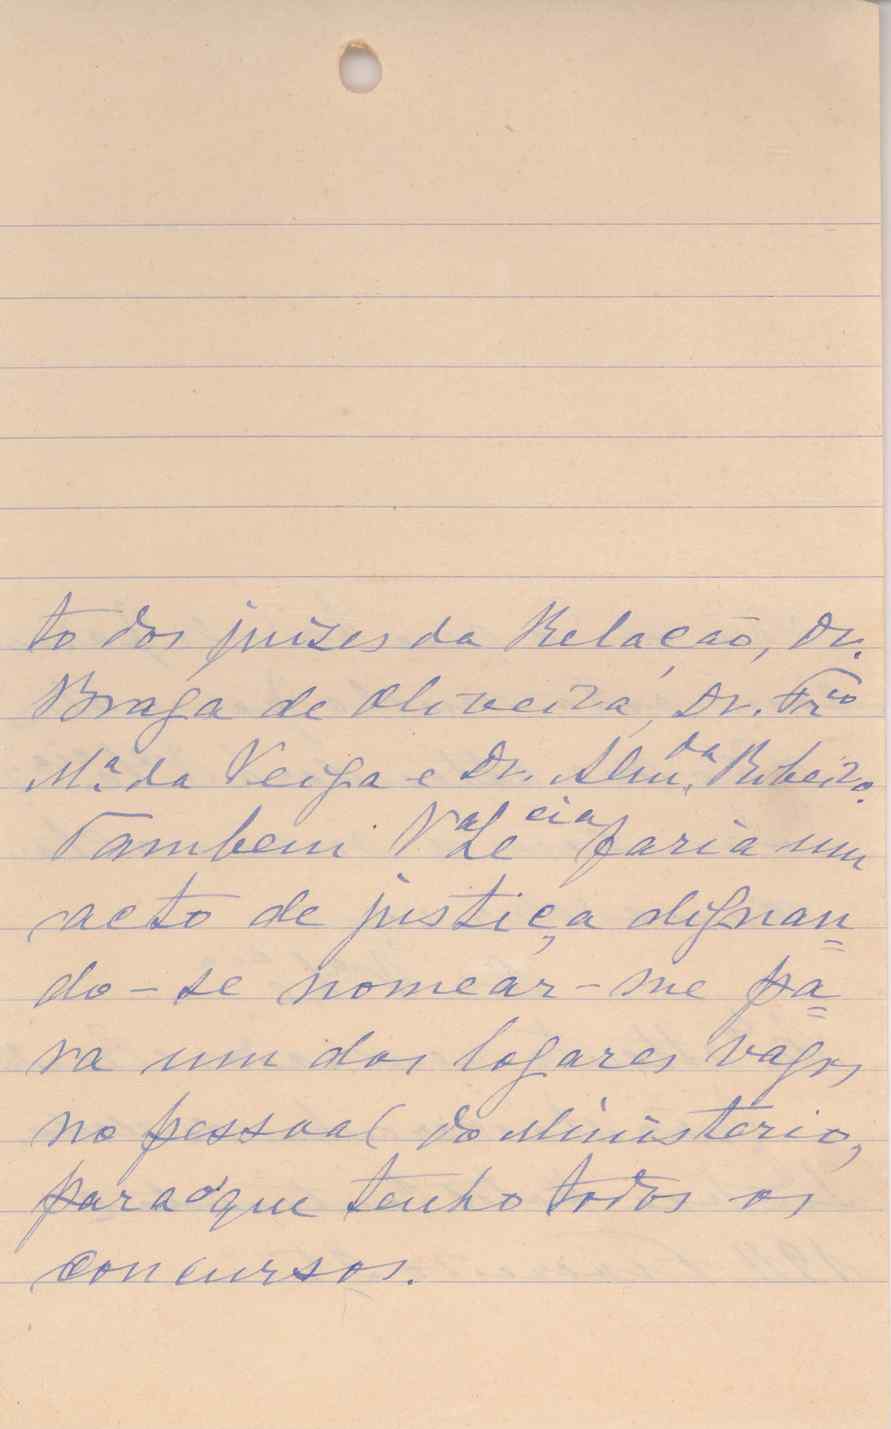 to dos juizes da Relação, Dr.
Braga de Oliveira, Dr. Frco
Ma. da Veiga e Dr. Almda. Ribeiro.
Tambem Va Excia faria um
acto de justiça dignan=
do-se nomear-me pa=
ra um dos logares vagos
no pessoal do Ministerio,
para o que tenho todos os
concursos.